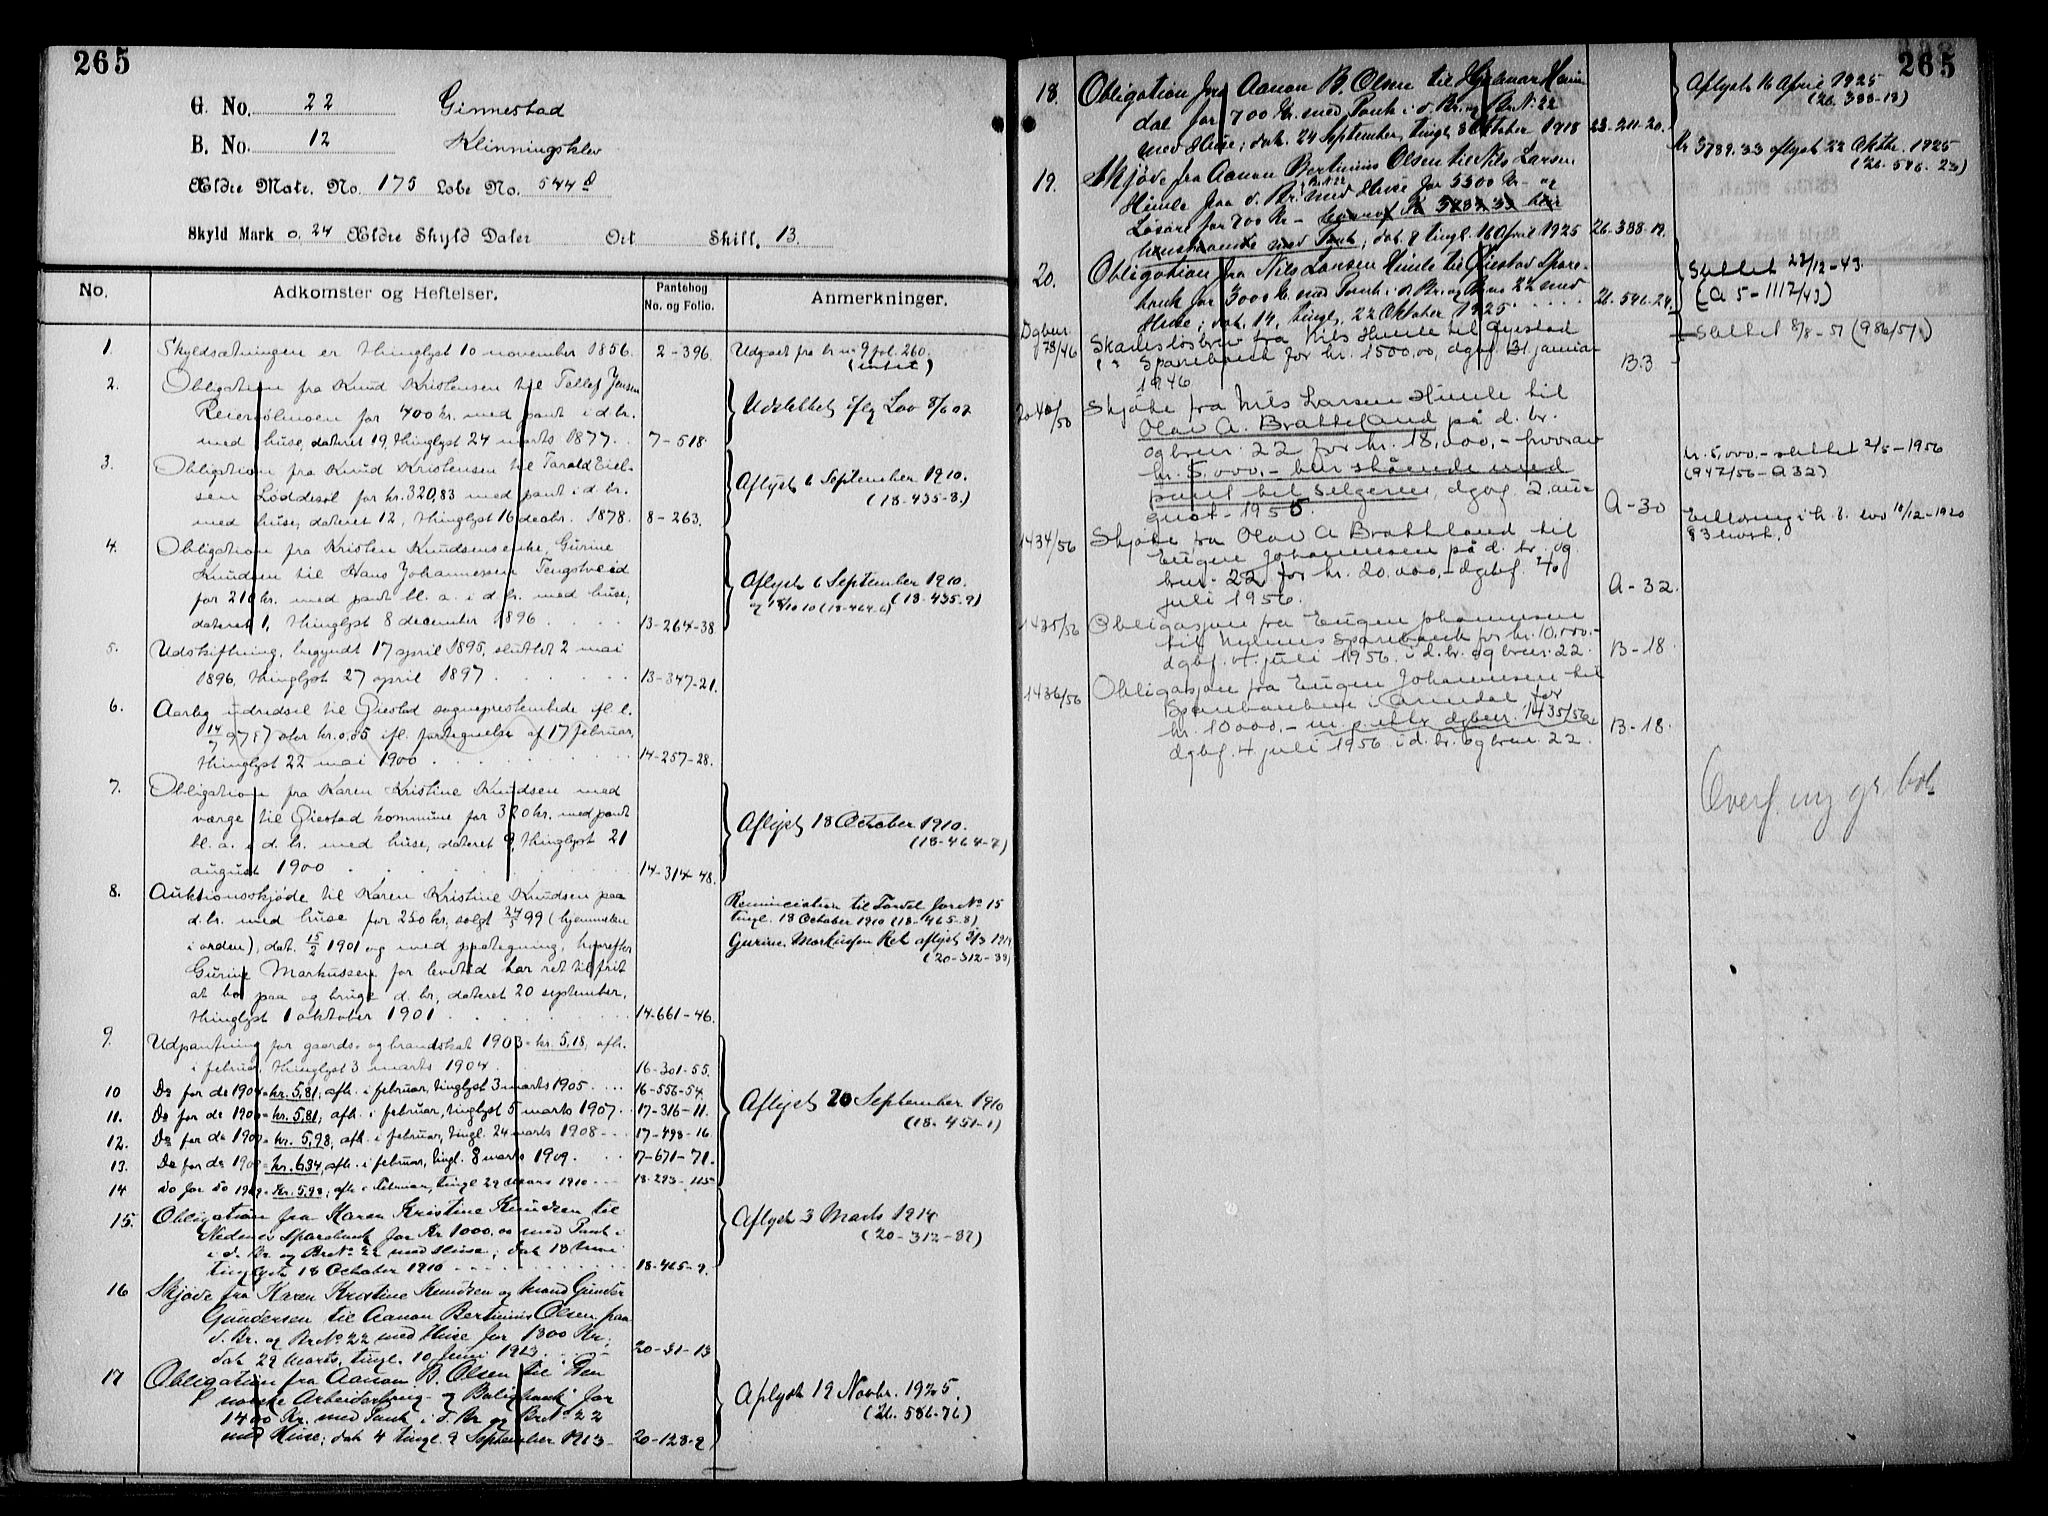 265
G. No. 22 Ginnestad
B. No. 12 Klinningsklev
Ældre Matr. No. 175 Løbe No. 544 d
Skyld Mark 0,24 Ældre Skyld Daler Ort Skill. 13.
No. Adkomster og Heftelser. Pantebog No. og Folio. Anmerkninger.
1. Skyldsætningen er thinglyst 10 november 1856. 2-396. Udgaaet fra br. no 9 fol. 260.
2. Obligation fra Knud Kristensen til Tellef Jensen
Reiersølmoen for 400 kr. med pant i d. br. Udslettet iflg Lov 8/6 07
med huse, dateret 19, thinglyst 24 marts 1877. 7-518.
3. Obligation fra Knud Kristensen til Tarald Eielsen
Løddesøl for kr. 320,83 med pant i d. br. Aflyst 6 September 1910. (18-435-8.)
med huse, dateret 12, thinglyst 16 decbr. 1878. 8-263.
4. Obligation fra Kristen Knudsens enke, Gurine
Knudsen til Hans Johannessen Tengstveid
for 210 kr. med pant bl. a. i d. br. med huse, Aflyst 6 September 1910. (18-435-9)
og 18/10 10 (18-464-6)
dateret 1, thinglyst 8 december 1896 13-264-38
5. Udskiftning, begyndt 17 april 1895, sluttet 2 mai
1896, thinglyst 27 april 1897 13-347-21.
6. Aarlig udredsel til Øiestad sogneprestembede ifl. l.
14/7 97 § 7 stor kr. 0,05 ifl. fortegnelse af 17 februar,
thinglyst 22 mai 1900 14-257-28.
7. Obligation fra Karen Kristine Knudsen med
værge til Øiestad kommune for 320 kr. med pant Aflyst 18 October 1910.
bl. a. i d. br. med huse, dateret 9, thinglyst 21 (18-464-7)
august 1900 14-314-48.
8. Auktionsskjøde til Karen Kristine Knudsen paa Renunciation til Fordel for No 15
d. br. med huse for 250 kr., solgt 24/5 99 (hjemmelen tingl. 18 October 1910 (18-465-8)
i orden), dat. 15/2 1901 og med paategning, hvorefter Gurine Markussen Ret aflyst 3/3 1914
Gurine Markussen for levetid har ret til frit (20-312-88)
at bo paa og bruge d. br., dateret 20 september,
thinglyst 1 oktober 1901 14-661-46.
9. Udpantning for gaards- og brandskat 1903 = kr. 5,18, afh.
i februar, thinglyst 3 marts 1904 16-301-55.
10 Do for do 1904 = kr. 5,81, afh. i februar, tinglyst 3 marts 1905 16-556-54. Aflyst 20 September 1910
11. Do for do 1906 = kr. 5,81, afh. i februar, tinglyst 5 marts 1907 17-316-11. (18-451-1)
12. Do for do 1907 = kr. 5,98, afh. i februar, tingl. 24 marts 1908 17-498-16.
13. Do for do 1908 = kr. 6,34, afh. i februar, tingl. 8 marts 1909. 17-671-71.
14 Do for do 1909 = kr. 5,98, afh. i Februar, tingl. 29 Mars 1910 18-293-115
15. Obligation fra Karen Kristine Knudsen til
Nedenes Sparebank for Kr 1000,00 med Pant i Aflyst 3 Marts 1914
i d. Br. og Br No 22 med Huse; dat 18 (20-312-87)
tinglyst 18 October 1910 18-465-9.
16 Skjøde fra Karen Kristine Knudsen og Mand Gunder
Gundersen til Aanon Bertinius Olsen paa
d. Br. og Br No 22 med Huse for 1300 Kr;
dat 29 Marts, tingl. 10 Juni 1913 20-31-13
17 Obligation fra Aanon B. Olsen til Den
norske Arbeiderbrug- og Boligbank for Aflyst 19 Novbr. 1925.
1400 Kr. med Pant i d. Br og Br No 22 (26-586-76)
med Huse; dat 4 tingl. 9 September 1913 20-128-9
265
18. Obligation fra Aanon B. Olsen til Hjelmar Heimdal Aflyst 16 April 1925
for 700 Kr. med Pant i d. Br. og Br No 22 (26-388-18)
med Huse; dat. 24 September, tingl. 8 Oktober 1918 23-211-20.
19. Skjøde fra Aanon Bertinius Olsen til Nils Larsen Kr 3789.33 aflyst 22 Oktbr. 1925
Himle paa d. Br. & Br. N. 22 med Huse for 5300 Kr - og (26-546-23)
Løsøre for 700 Kr - hvoraf Kr 3789.33 bli'r
henstaaende med Pant; dat. 8 tingl. 16 April 1925 26-388-19.
20. Obligation fra Nils Larsen Himle til Øiestad Sparebank Slettet 22/12-43.
for 3000 Kr. med Pant i d. Br. og Br no 22 med (A 5-1117/43)
Huse; dat. 14, tingl. 22 Oktober 1925 26-546-24.
Dgbnr 78/46 Skadesløsbrev fra Nils Himle til Øyestad Slettet 8/8-51 (986/51)
Sparebank for kr. 1500,00, dgbf. 31. januar
1946 B.3
2040/50 Skjøte fra Nils Larsen Himle til
Olav A. Bratteland på d. br.
og brnr. 22 for kr. 18.000,- hvorav kr. 5.000.- slettet 2/5-1956
kr. 5.000.- blir stående med (947/56-A 32)
pant til selgeren, dgbf. 2. august
1955. A-30
1434/56 Skjøte fra Olav A Brattland til
Eugen Johannesen på d. br. og
brnr. 22 for kr. 20.000,- dgbf. 4
juli 1956. A-32.
1435/56 Obligasjon fra Eugen Johannesen
til Nedenes Sparebank for kr. 10.000.-
dgbf. 4. juli 1956. i d. br. og brnr. 22. B-18.
1436/56 Obligasjon fra Eugen Johannesen til
Sparebanken i Arendal for
kr. 10000.- m. p. etter dgbnr. 1435/56,
dgbf. 4 juli 1956. i d. br. og brnr. 22. B-18.
Overf. ny gr. bok